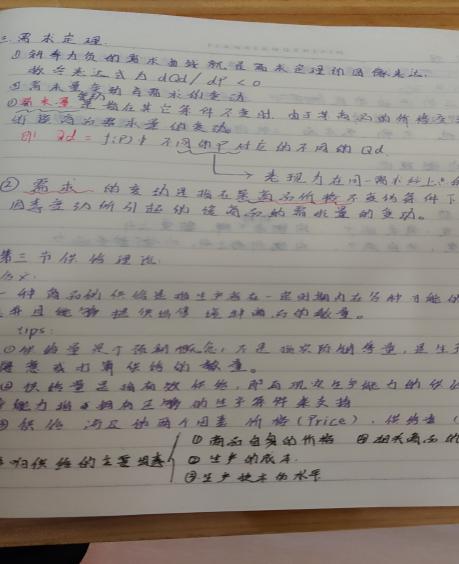 三. 需求定理.
①斜率为负的需求曲线就是需求定理的图像表达.
数学表达式为 dQd/dP < 0
②需求量变动与需求的变动
①需求量变动是指在其它条件不变时, 由于某商品的价格变
的该商品需求量的变动.
即: Qd = f(P)中不同的P对应的不同的Qd.
表现为在同一需求线上
② 需求 的变动是指在某商品价格不变的条件下
因素变动所引起的该商品的需求量的变动.
第三节供给理论
一种商品的供给是指生产者在一定时期内在各种可能的
并且能够提供出售该种商品的数量.
tips:
①供给量是个预期概念, 不是指实际销售量, 是生
愿意或打算供给的数量.
②供给量是指有效供给, 即有现实生产能力的供
能力指拥有足够的生产条件来支持
③供给 涉及的两个因素 价格(Price), 供给量(
归供给的主要因素
①商品自身的价格 ④相关商品的
②生产的成本.
③生产技术的水平